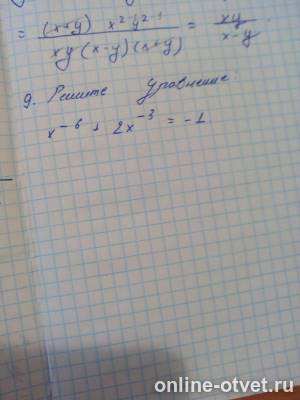 = (x+y) x²y²⁻¹ / xy(x-y)(x+y) = xy / x-y
9. Решите уравнение
x⁻⁶ + 2x⁻³ = -1
online-otvet.ru